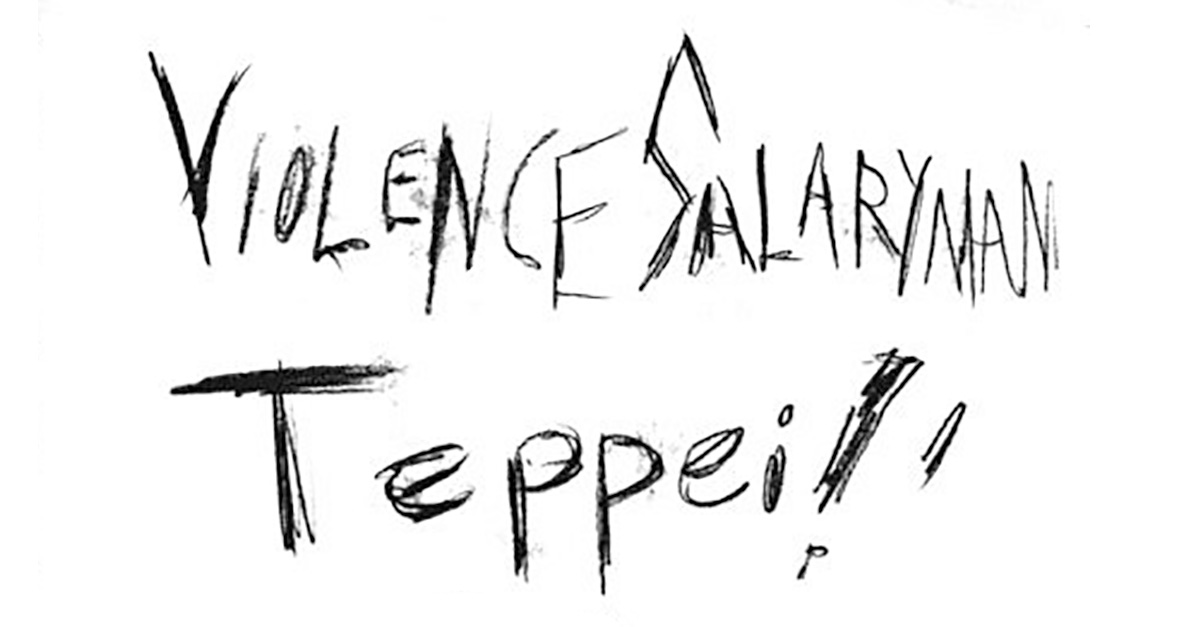 VIOLENCE SALARYMAN
Teppei!